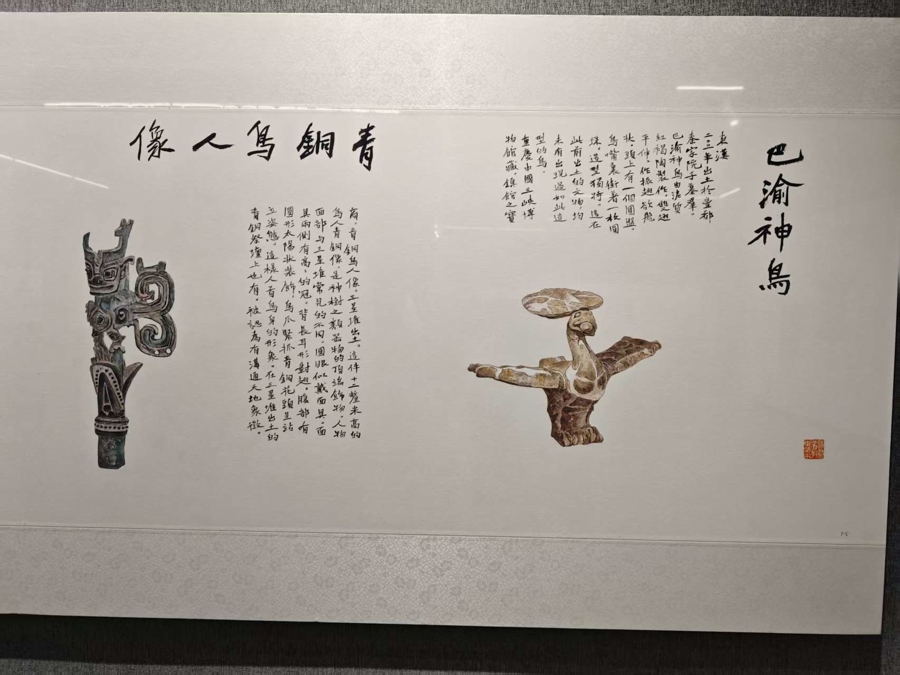 巴渝神鳥
東漢
二〇〇二年出土於豐都
秦家院子墓羣，
巴渝神鳥由泥質
紅褐陶製作，雙翅
平伸，作振翅欲飛
狀，頭上有一個圓盤，
鳥嘴裏銜著一枚圓
珠，造型獨特，這在
此前出土的文物，均
未有出現過如此造
型的鳥。
重慶中國三峽博
物館藏鎮館之寶
青銅鳥人像
商，青銅鳥人像，三星堆出土，這件十二釐米高的
鳥人青銅像，是神樹之類器物的頂端飾物，人物
面部與三星堆常見的不同，圓眼似戴面具，面
具兩側有高高的冠，背長耳形對翅，腹部有
圓形太陽狀裝飾，鳥爪緊抓青銅花蹟呈站
立姿態，這樣人首鳥身的形象，在三星堆出土的
青銅祭壇上也有，被認為有溝通天地象徵。